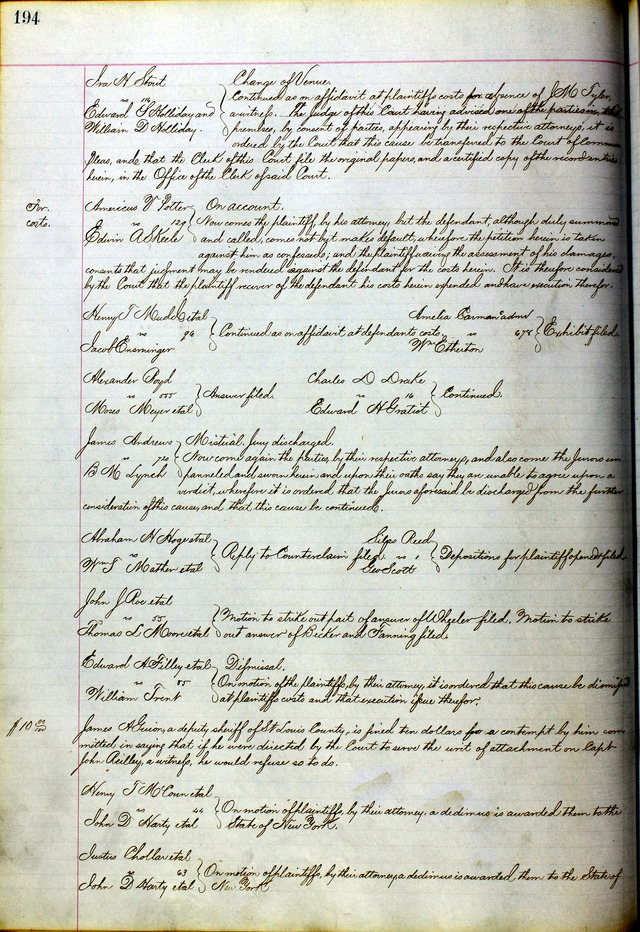 194
Ira H Stout
Change of Venue.
Continued as on affidavit at plaintiffs costs for absence of J M
vs
Edward S Holliday and
a witness. The Judge of this Court having advised one of the parties in the
William D Holliday.
premises, by consent of parties, appearing by their respective attorneys, it is
ordered by the Court that this cause be transferred to the Court of Common
Pleas, and that the Clerk of this Court file the original papers, and a certified copy of the record entries
herein, in the Office of the Clerk of said Court.
For
costs.
Americus Potter
On account.
vs 129
Now comes the plaintiff, by his attorney, but the defendant, although duly summoned
Edwin A Skeele
and called, comes not but makes default, wherefore the petition herein is taken
against him as confessed; and the plaintiff waiving the assessment of his damages,
consents that judgment may be rendered against the defendant for the costs herein. It is therefore considered
by the Court that the plaintiff recover of the defendant his costs herein expended and have execution therefor.
Henry T Mudd et al
vs 96
Jacob Ensminger
Continued as on affidavit at defendants costs.
Amelia Carman admr
vs 678
Wm Etherton
Exhibit filed.
Alexander Boyd
vs 555
Moses Meyer et al
Answer filed.
Charles D Drake
vs 16
Edward H Gratiot
Continued.
James Andrews
Mistrial, Jury discharged.
vs 720
Now come again the parties, by their respective attorneys, and also come the Jurors im
B M Lynch
panneled and sworn herein and upon their oaths say they are unable to agree upon a
verdict, wherefore it is ordered that the Jurors aforesaid be discharged from the further
consideration of this cause, and that this cause be continued.
Abraham H Hoge et al
vs
Wm T Mather et al
Reply to Counterclaim filed.
Silas Reed
vs 1
Geo Scott
Depositions for plaintiff opened & filed
John J Roe et al
vs 55
Motion to strike out part of answer of Wheeler filed. Motion to strike
Thomas L Moore et al
out answer of Becker and Fanning filed.
Edward A Filley et al
Dismissal.
vs 85
On motion of the plaintiffs, by their attorney, it is ordered that this cause be dismissed
William Trent
at plaintiffs costs and that execution issue therefor.
$10 00/100
James A Guion, a deputy sheriff of St Louis County, is fined ten dollars for a contempt by him com
mitted in saying that if he were directed by the Court to serve the writ of attachment on Capt
John Reilley, a witness, he would refuse so to do.
Henry T McCoun et al
vs 44
On motion of plaintiffs, by their attorney, a dedimus is awarded them to the
John D Harty et al
State of New York.
Justus Chollar et al
vs 63
On motion of plaintiffs, by their attorney, a dedimus is awarded them to the State of
John D Harty et al
New York.